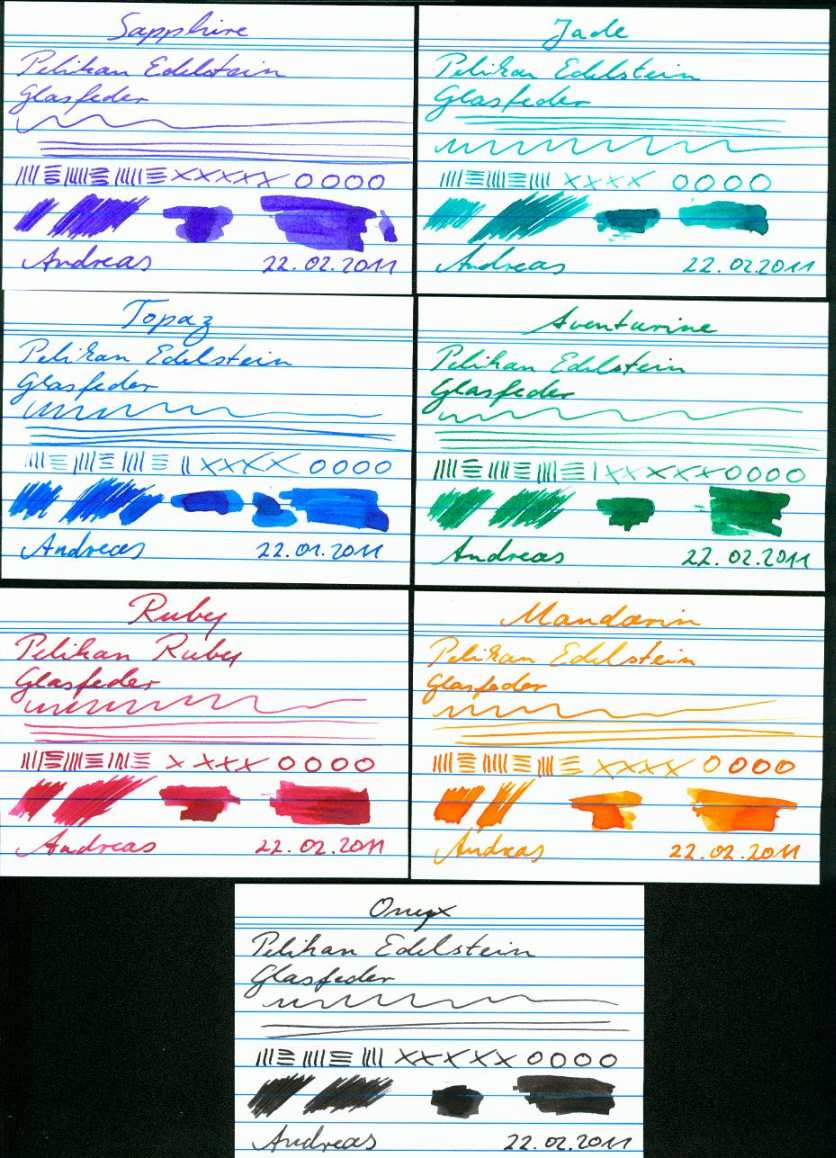 Sapphire
Pelikan Edelstein
Glasfeder
XXXXX OOOO
Andreas 22.02.2011
Jade
Pelikan Edelstein
Glasfeder
XXXX OOOO
Andreas 22.02.2011
Topaz
Pelikan Edelstein
Glasfeder
XXXX OOOO
Andreas 22.02.2011
Aventurine
Pelikan Edelstein
Glasfeder
XXXXXX OOOO
Andreas 22.02.2011
Ruby
Pelikan Ruby
Glasfeder
XXXX OOOO
Andreas 22.02.2011
Mandarin
Pelikan Edelstein
Glasfeder
XXXX OOOO
Andreas 22.02.2011
Onyx
Pelikan Edelstein
Glasfeder
XXXXX OOOO
Andreas 22.02.2011